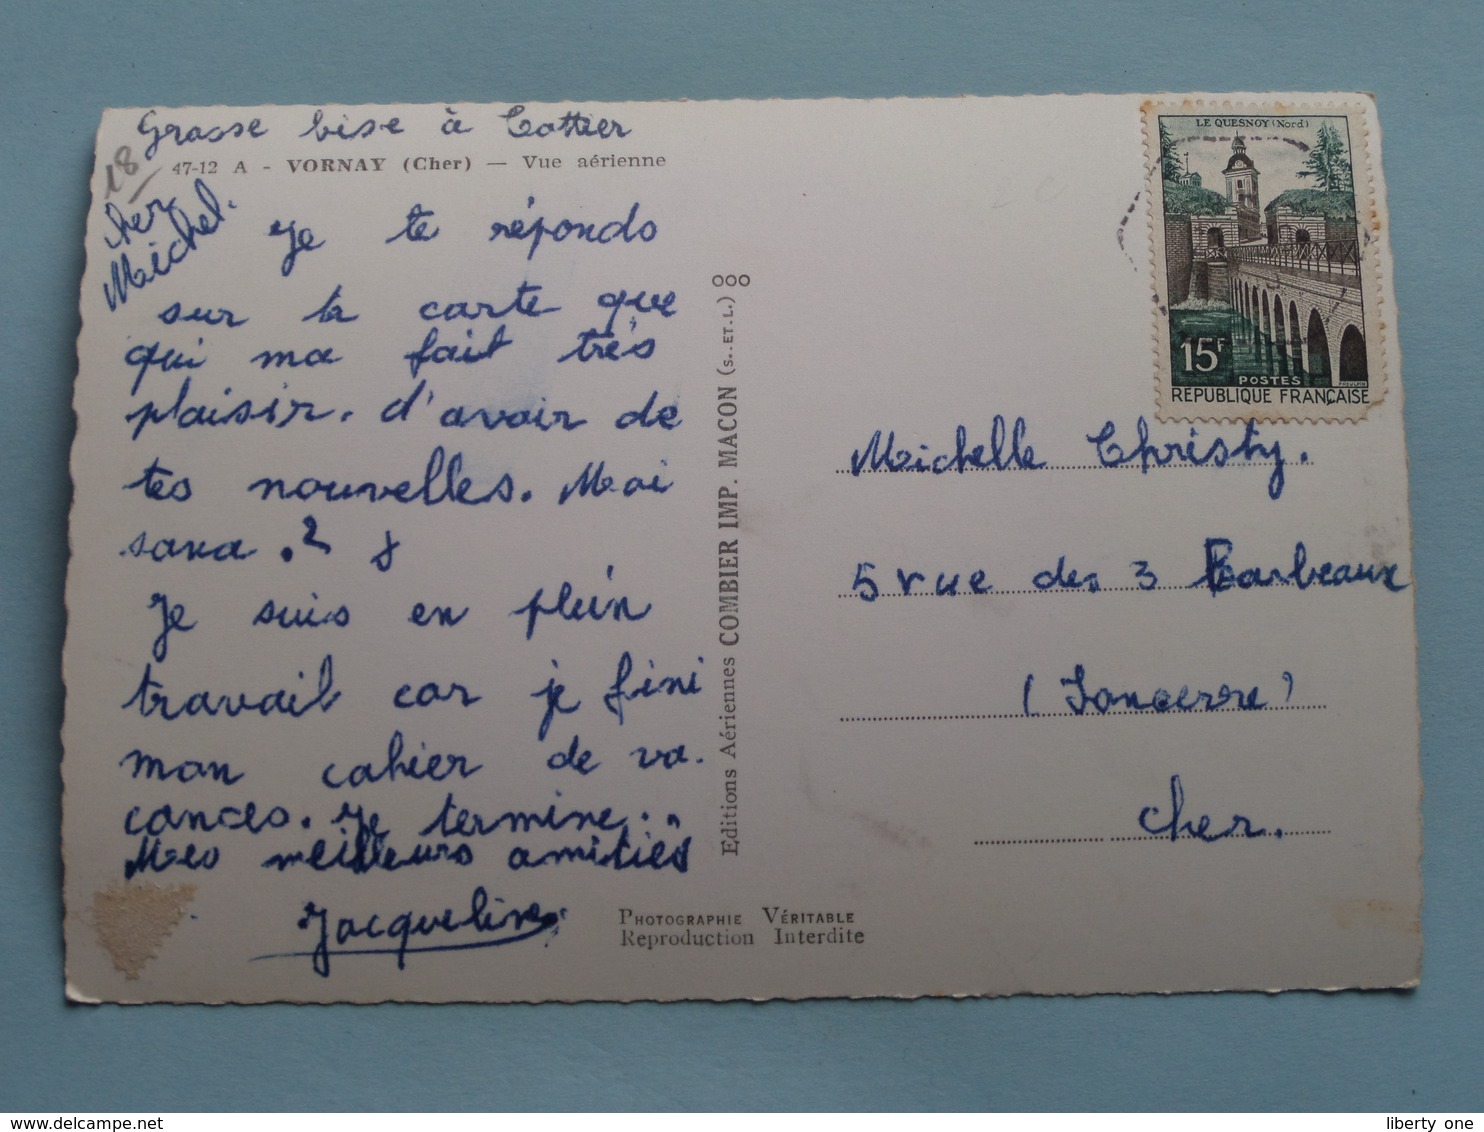 Grosse bise à Cottier
18
47-12 A - VORNAY (Cher) — Vue aérienne
cher
Michel.
Je te réponds
sur ta carte que
qui ma fait très
plaisir. d'avoir de
tes nouvelles. Moi
sava.?
Je suis en plein
travail car je fini
mon cahier de va.
cances. Je termine..
Mes meilleurs amitiés
Jacqueline
Editions Aériennes COMBIER IMP. MACON (S.-ET.L.) OOO
PHOTOGRAPHIE VÉRITABLE
Reproduction Interdite
LE QUESNOY (Nord)
15F
POSTES
RÉPUBLIQUE FRANÇAISE
Michelle Christy.
5 rue des 3 Barbeaux
(Sancerre)
Cher.
liberty one